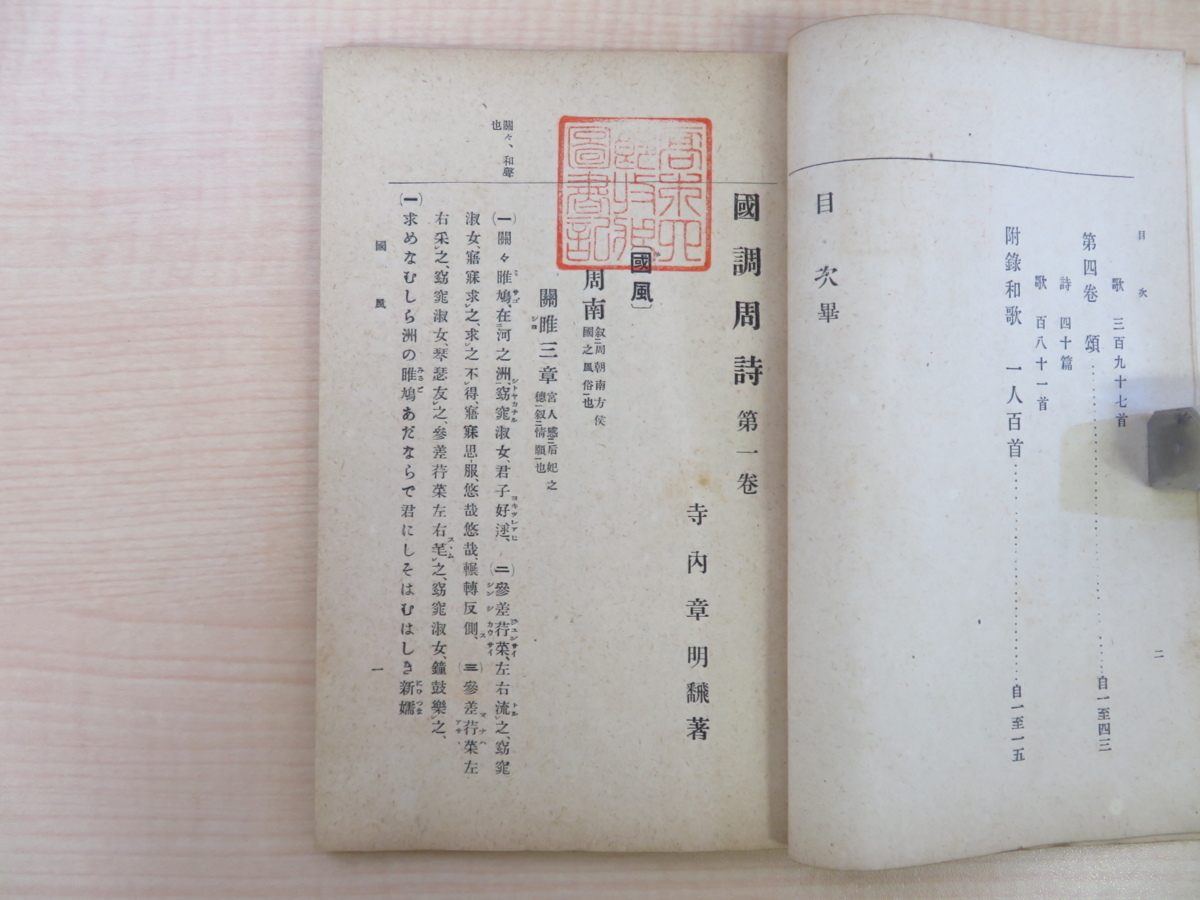 目次
歌 三百九十七首
第四卷 頌 自一至四三
詩 四十篇
歌 百八十一首
附錄和歌 一人百首 自一至一五
目次畢
二
國調周詩 第一卷
寺內章明 著
〔國風〕
周南 叙二周朝南方侯國之風俗一也
關雎三章 宮人感二后妃之德一叙二情願一也
關々、和聲也
(一)關々雎鳩、在河之洲、窈窕淑女、君子好逑、(二)參差荇菜、左右流レ之、窈窕
淑女、寤寐求レ之、求レ之不レ得、寤寐思服、悠哉悠哉、輾轉反側、(三)參差荇菜左
右采レ之、窈窕淑女、琴瑟友レ之、參差荇菜左右芼レ之、窈窕淑女、鐘鼓樂レ之、
(一)求めなむしら洲の雎鳩あだならで君にしそはむはしき新孀
國風
一